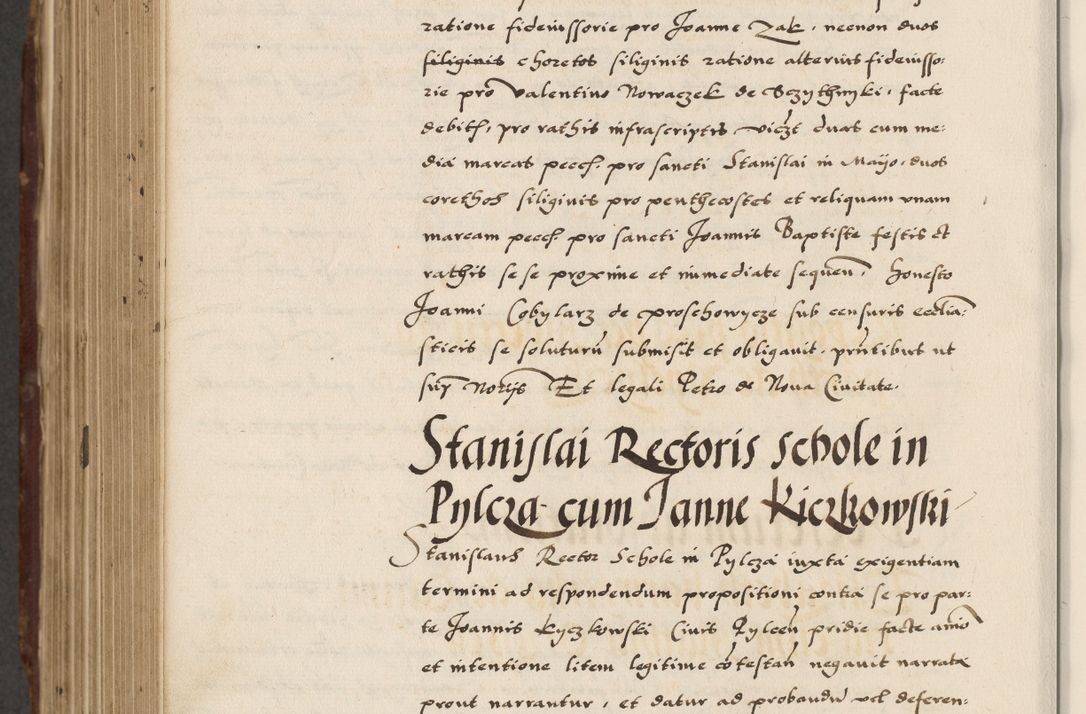 ratione fideiussorie pro Joanne Zak, necnon duos
siliginis choretos siliginis ratione alterius fideiusso:
rie pro Valentino Nowaczek de Sczythnyki, facte
debitß, pro rathis infrascriptis viczt duas cum me:
dia marcas pecch pro sancti Stanislai in Mayo, duos
corethos siliginis pro penthecostes et reliquam vnam
marcam pecch pro sancti Joannis Baptiste festis et
rathis se se proxime et immediate sequen, Honesto
Joanni Cobylarz de Proschowycze sub censuris ecclia:
sticis se soluturu submisit et obligauit, pntibus ut
sup Norijs Et legali Petro de Noua Ciuitate.
Stanislai Rectoris schole in
Pylcza cum Janne Kiczkowski
Stanislaus Rector Schole in Pylcza iuxta exigentiam
termini ad respondendum propositioni contra se pro par:
te Joannis Kyczkowski Ciuis Pylcen pridie facte animo
et intentione litem legitime cotestan negauit narrata
prout narrantur, et datur ad probandu vel deferen: